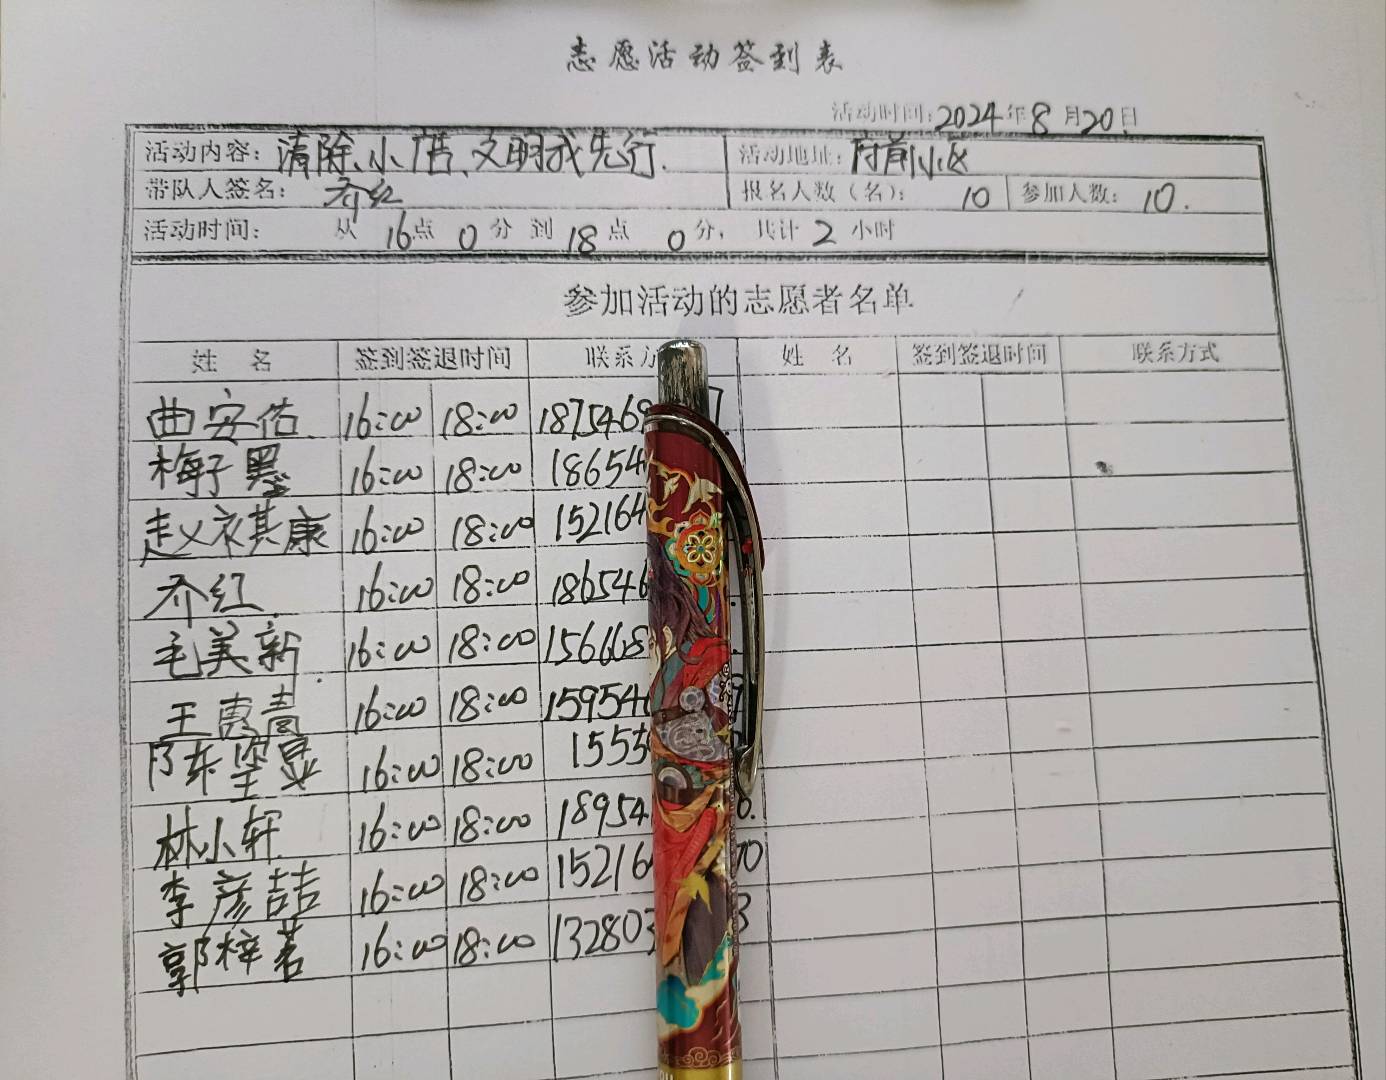 志愿活动签到表
活动时间:2024年8月20日
活动内容:清除小广告、文明我先行. 活动地址:府前小区
带队人签名:乔红 报名人数(名):10 参加人数:10.
活动时间: 从16点0分到18点0分,共计2小时
参加活动的志愿者名单
姓 名 签到签退时间 联系方 姓 名 签到签退时间 联系方式
曲安佑 16:00 18:00 1875469
梅子墨 16:00 18:00 18654
赵义祺康 16:00 18:00 152164
乔红 16:00 18:00 186546
毛美新 16:00 18:00 156668
王惠青 16:00 18:00 15954 9
陈坚 16:00 18:00 1555
林小轩 16:00 18:00 18954 6.
李彦喆 16:00 18:00 15216 70
郭梓茗 16:00 18:00 13280 3